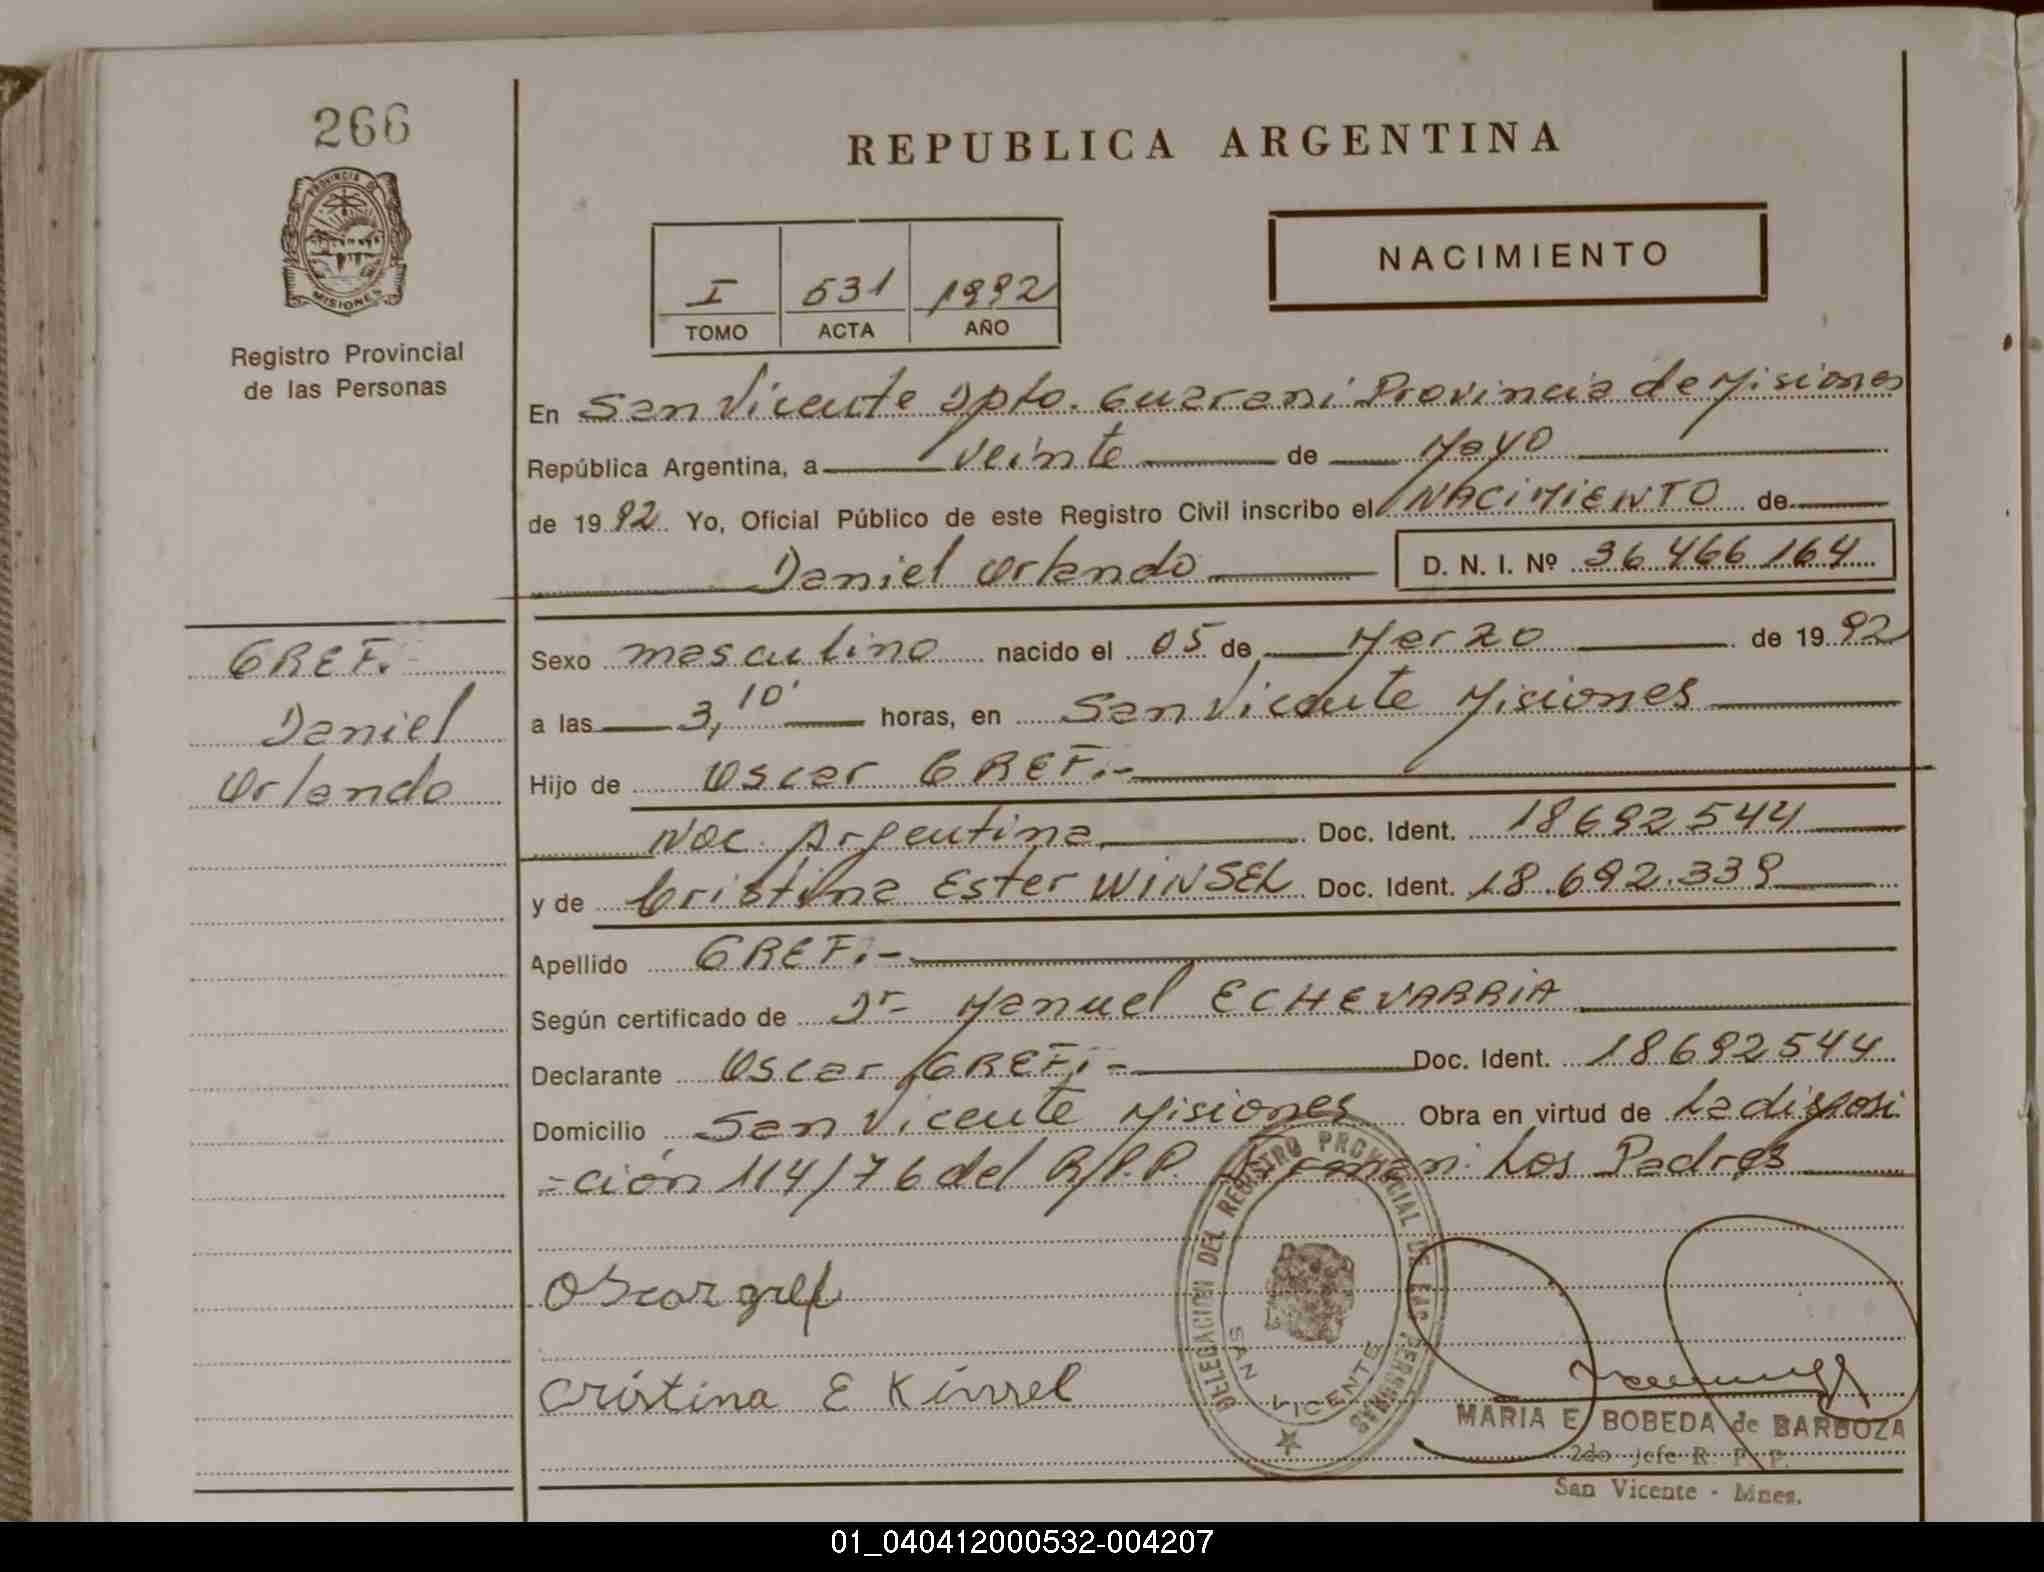 266
PROVINCIA DE
MISIONES
Registro Provincial
de las Personas
GREF.-
Daniel
Orlando
REPUBLICA ARGENTINA
NACIMIENTO
I 531 1992
TOMO ACTA AÑO
En San Vicente Dpto. Guarani Provincia de Misiones
República Argentina, a veinte de Mayo
de 1992 Yo, Oficial Público de este Registro Civil inscribo el NACIMIENTO de
Daniel Orlando D. N. I. Nº 36 466 164
Sexo masculino nacido el 05 de Marzo de 1992
a las 3,10' horas, en San Vicente Misiones
Hijo de Oscar GREF.-
Nac. Argentina Doc. Ident. 18692544
y de Cristina Ester WINSEL Doc. Ident. 18.692.339
Apellido GREF.-
Según certificado de Dr- Manuel ECHEVARRIA
Declarante Oscar GREF.- Doc. Ident. 18692544
Domicilio San Vicente Misiones Obra en virtud de La disposi
-ción 114/76 del R/P.P. Firman: Los Padres
Oscar gref
Cristina E Kinsel
DELEGACION DEL REGISTRO PROVINCIAL DE LAS PERSONAS
SAN VICENTE
MARIA E. BOBEDA de BARBOZA
2do Jefe R. P. P.
San Vicente - Mnes.
01_040412000532-004207